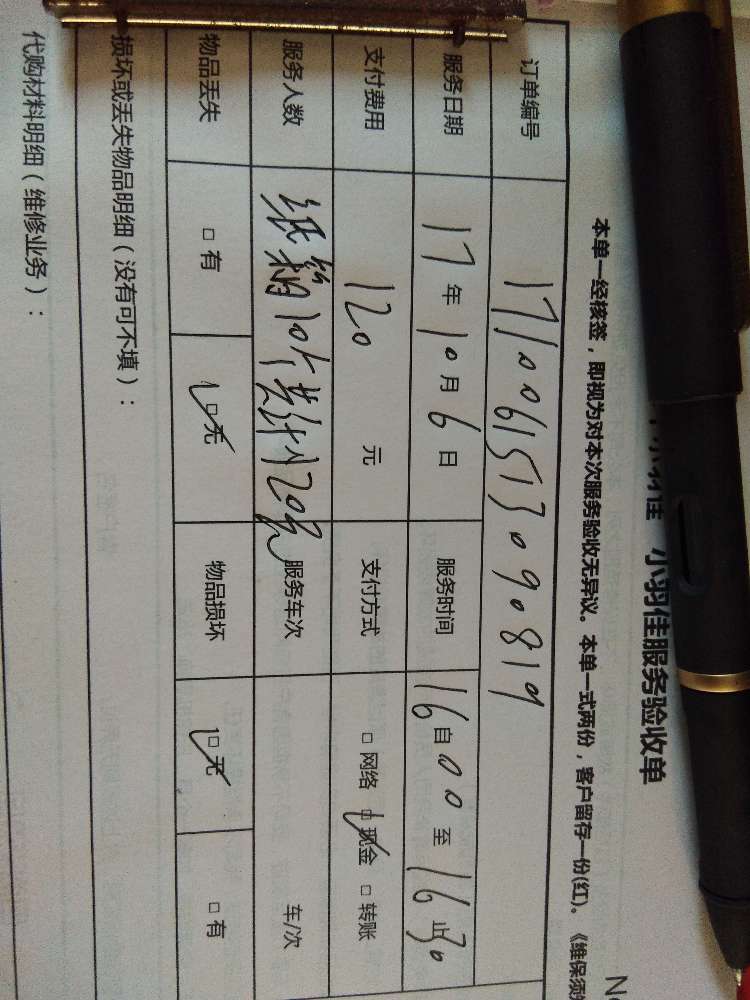 小羽佳 小羽佳服务验收单
本单一经核签，即视为对本次服务验收无异议。本单一式两份，客户留存一份(红)。《维保须
订单编号 1710061513090819
服务日期 17年10月6日 服务时间 自16 00至16 30止
支付费用 120 元 支付方式 □网络 □现金 □转账
服务人数 纸箱10个共计120元 服务车次 车/次
物品丢失 □有 □无 物品损坏 □无 □有
损坏或丢失物品明细（没有可不填）：
代购材料明细（维修业务）：